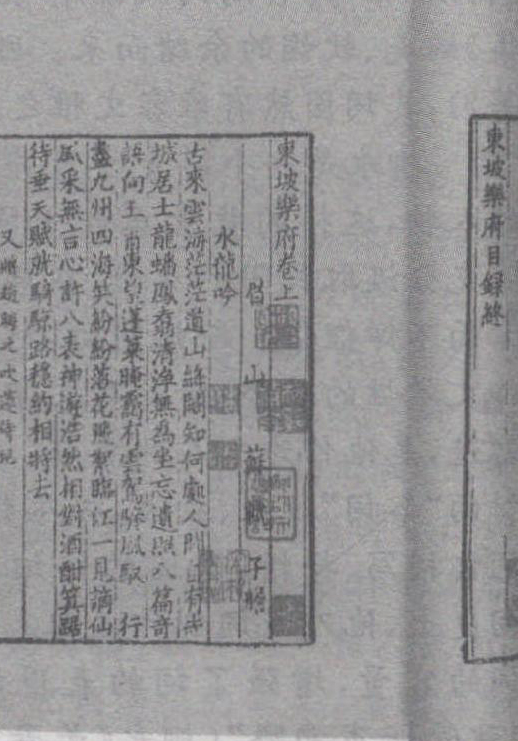 東坡樂府目録終
東坡樂府卷上
眉山 蘇軾 子瞻
水龍吟
古來雲海茫茫道山絳闕知何處人間自有赤
城居士龍蟠鳳翥清淨無為坐忘遺照八篇奇
語向玉霄東望蓬萊晻靄有雲駕驂風馭 行
盡九州四海笑紛紛落花飛絮臨江一見謫仙
風采無言心許八表神游浩然相對酒酣箕踞
待垂天賦就騎鯨路穩約相將去
又 贈趙晦之吹侍兒